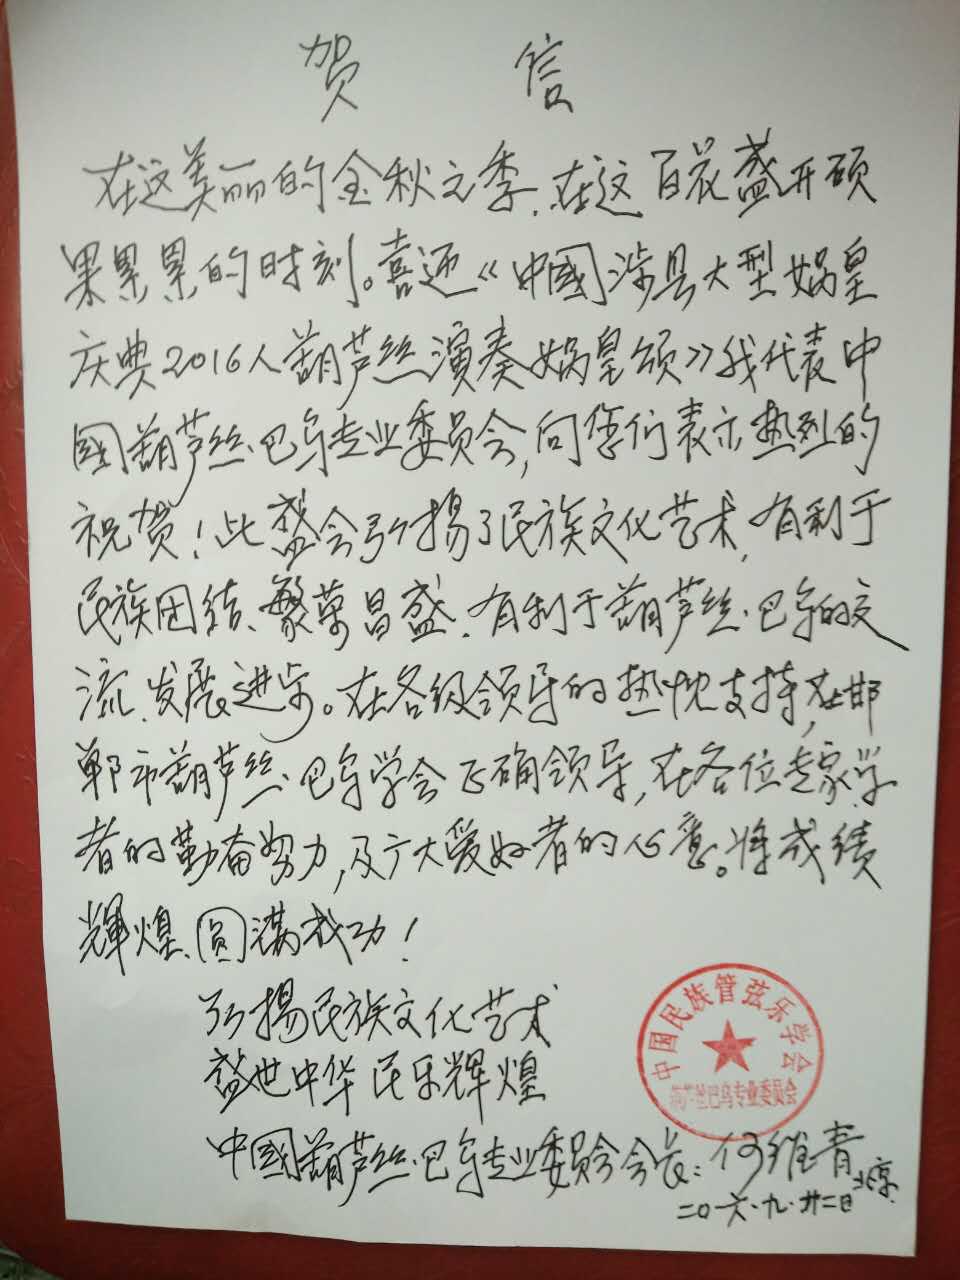 贺信
在这美丽的金秋之季.在这百花盛开硕
果累累的时刻。喜迎《中國涉县大型娲皇
庆典2016人葫芦丝演奏娲皇颂》我代表中
國葫芦丝.巴乌专业委员会,向您们表示热烈的
祝贺!此盛会弘揚了民族文化艺术,有利于
民族团结、繁荣昌盛.有利于葫芦丝.巴乌的交
流、发展进步。在各级领导的热忱支持,在邯
郸市葫芦丝.巴乌学会正确领导,在各位专家学
者的勤奋努力,及广大爱好者的心意。将成绩
輝煌、圆满成功!
弘揚民族文化艺术
盛世中华民乐辉煌
中國葫芦丝.巴乌专业委员会会长:何维青
北京
二〇一六.九.廿二日
中国民族管弦乐学会
葫芦丝巴乌专业委员会